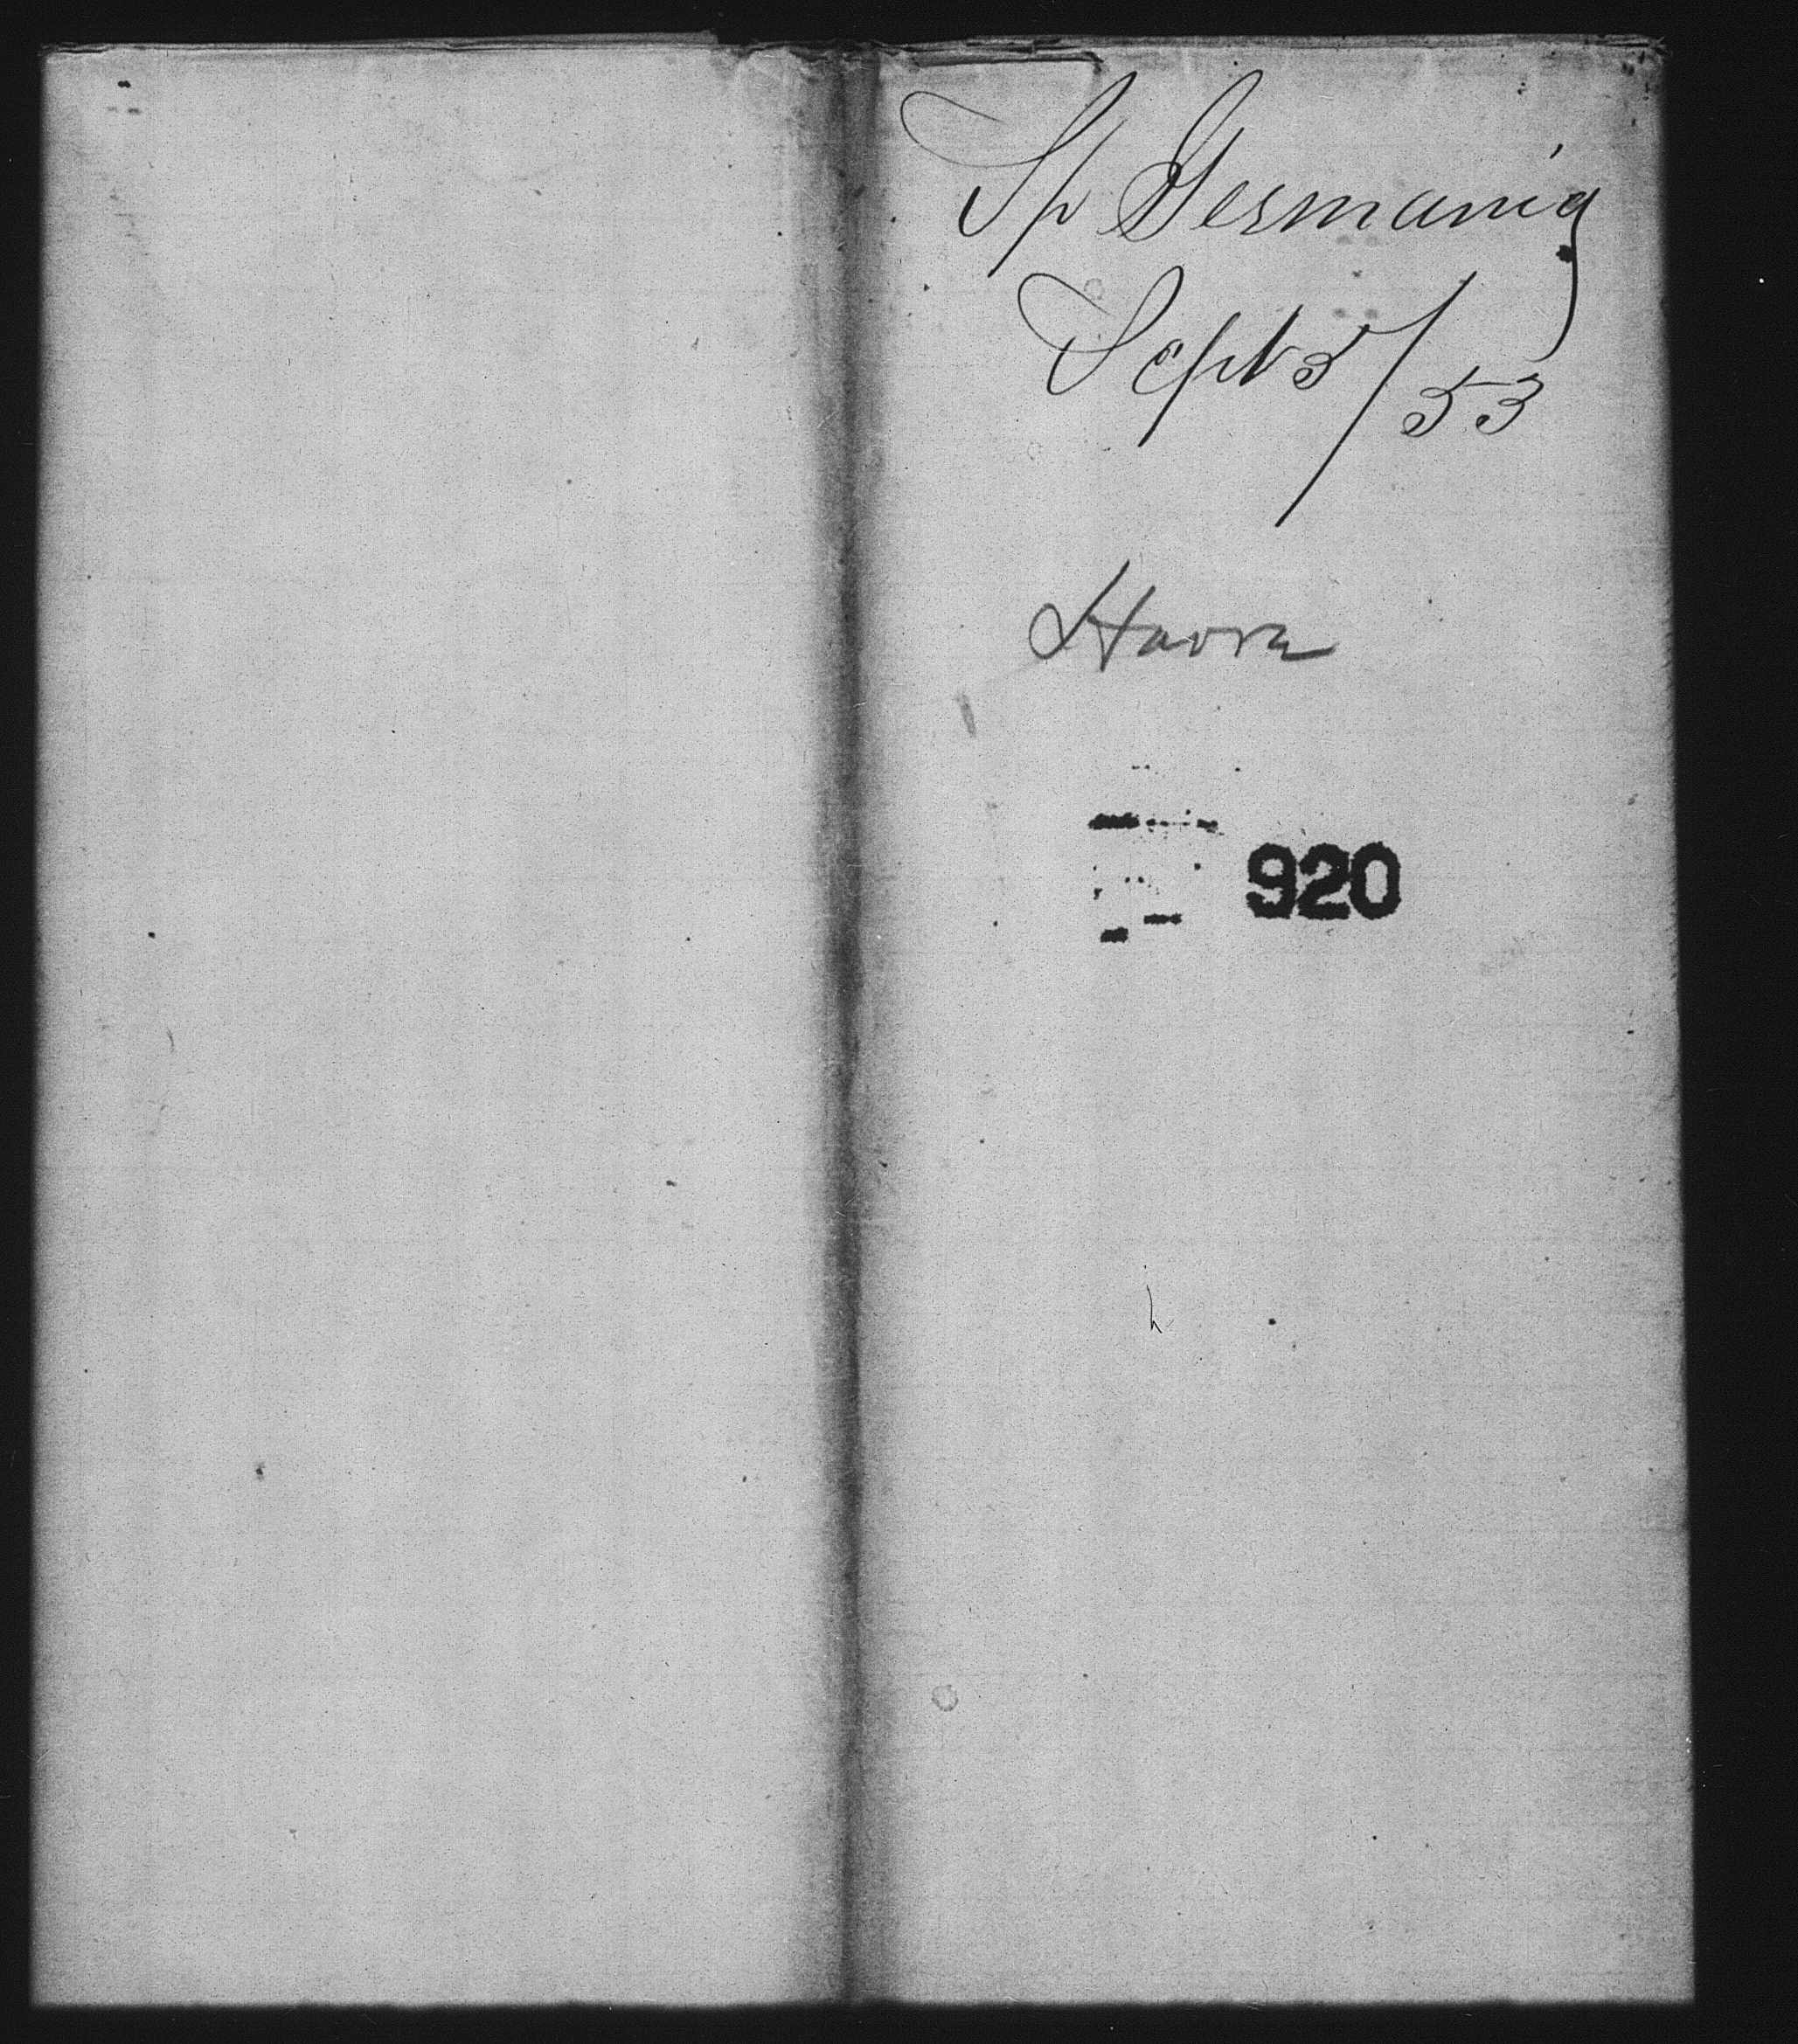 Sh Germania
Sept 5/53
Havre
920